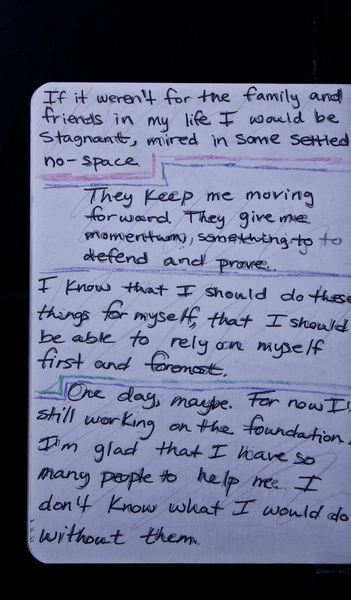 If it weren't for the family and
friends in my life I would be
stagnant, mired in some settled
no-space
They keep me moving
forward. They give me
momentum, something to to
defend and prove..
I know that I should do these
things for myself, that I should
be able to rely on myself
first and foremost.
One day, maybe. For now I'
still working on the foundation.
I'm glad that I have so
many people to help me. I
don't know what I would do
without them.